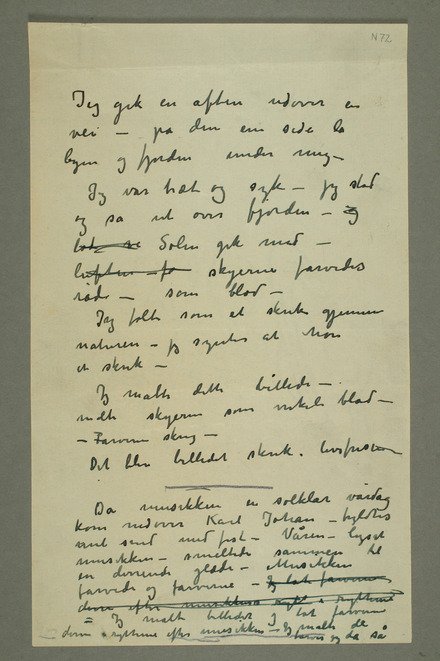 N 72
Jeg gik en aften udover en
vei – på den ene side lå
byen og fjorden under mig –
Jeg var træt og syk – jeg stod
og så ut over fjorden – og
Solen gik ned –
luften – skyerne farvedes
røde – som blod –
Jeg følte som et skrik gjennem
naturen – jeg syntes at høre
et skrik –
Jeg malte dette billede –
malte skyerne som virkeligt blod –
– Farverne skreg –
Det blev billedet skrik i livsfrisen
Da musikken en solklar vårdag
kom nedover Karl Johan – fyldtes
mit sind med fest – Våren – lyset
musikken – smeltede sammen til
en dirrende glæde – Musikken
farvede og farverne – Jeg lot farverne
dirre efter musikkens rytme
= Jeg malte billedet Jeg lot farverne
dirre i rytme efter musikken – Jeg malte de
farver jeg da så